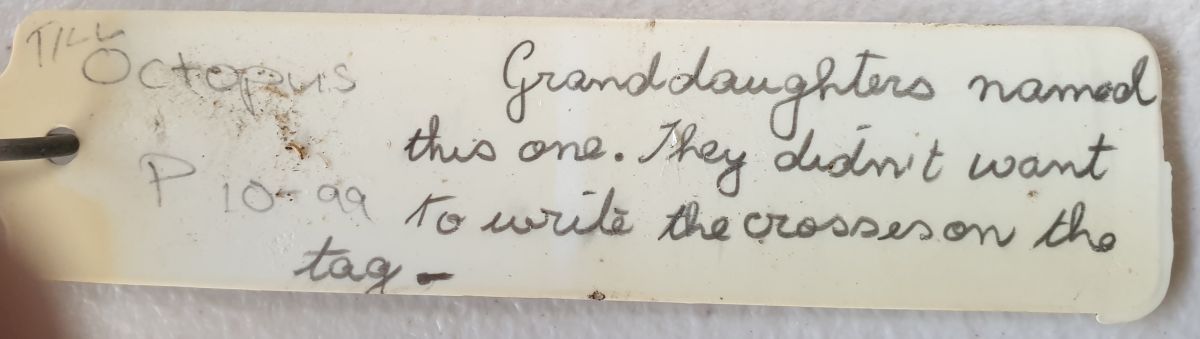 TILL
Octopus
P 10-99
Granddaughters named
this one. They didn't want
to write the crosses on the
tag -